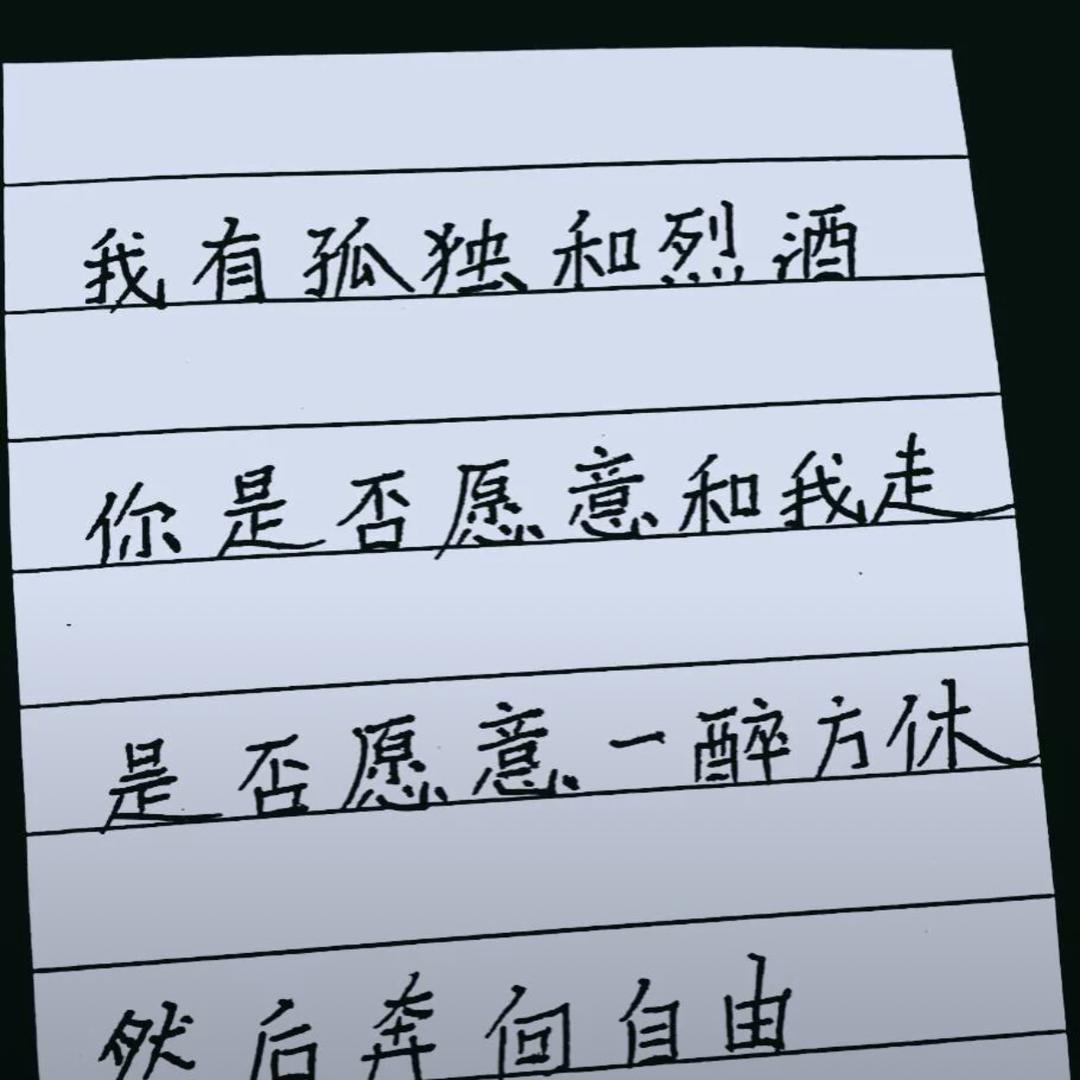 我有孤独和烈酒
你是否愿意和我走
是否愿意一醉方休
然后奔向自由